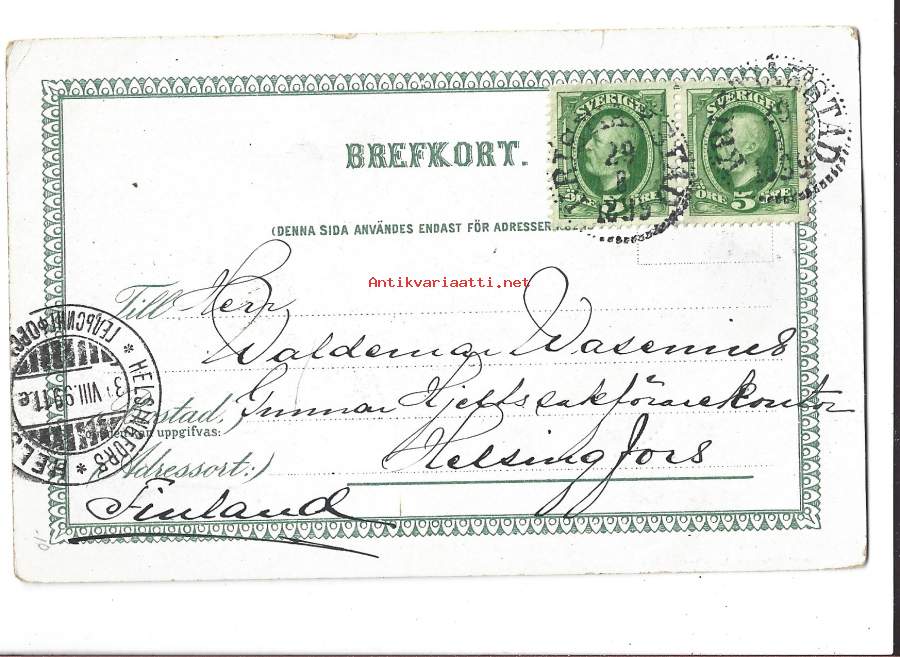 BREFKORT.
SVERIGE SVERIGE
29
8
ÖRE 5 ÖRE
(DENNA SIDA ANVÄNDES ENDAST FÖR ADRESSEN
Antikvariaatti.net
Till Herr
Waldemar Wasenius
Bostad, Gunnar Hjeltssakförarekontor
uppgifvas:
Helsingfors
(Adressort:)
Finland
HELSINGFORS
VIII.99